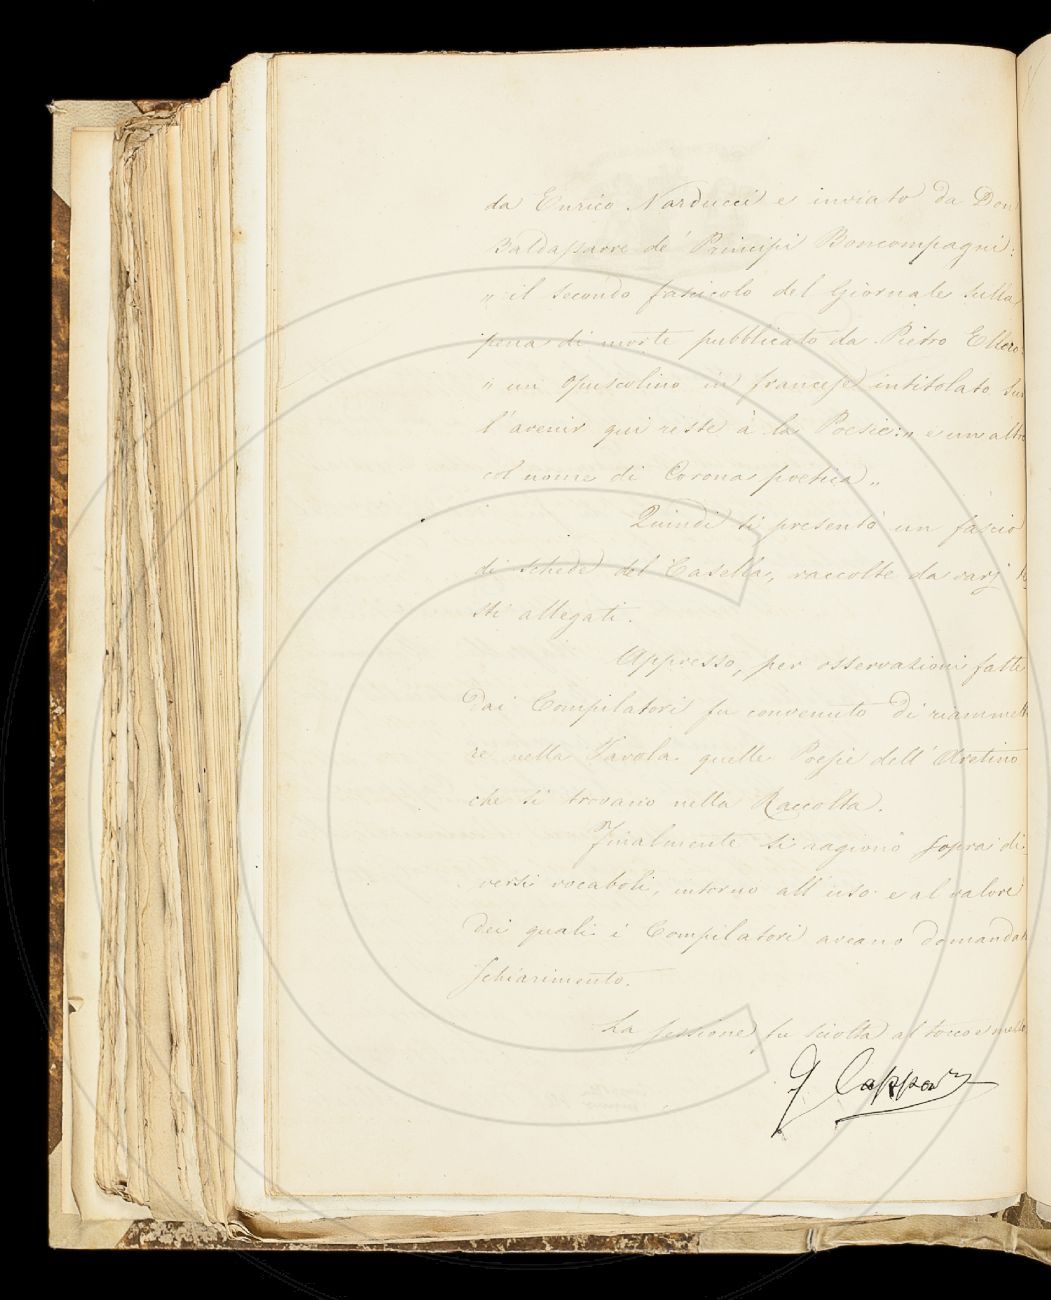 da Enrico Narducci e inviato da Don
Baldassarre de' Principi Boncompagni:
„ il secondo fascicolo del Giornale sulla
pena di morte pubblicato da Pietro Ellero:
„ un opuscolino in francese intitolato Sur
l'avenir qui reste à la Poesie:„ e un altro
col nome di Corona poetica„
Quindi si presentò un fascio
di schede del Casella, raccolte da varj te
sti allegati.
Appresso, per osservazioni fatte
dai Compilatori fu convenuto di riammette
re nella Tavola quelle Poesie dell'Aretino
che si trovano nella Raccolta.
Finalmente si ragionò sopra di
versi vocaboli, intorno all'uso e al valore
dei quali i Compilatori aveano domandato
schiarimento.
La sessione fu sciolta al tocco e mezzo
G Capponi